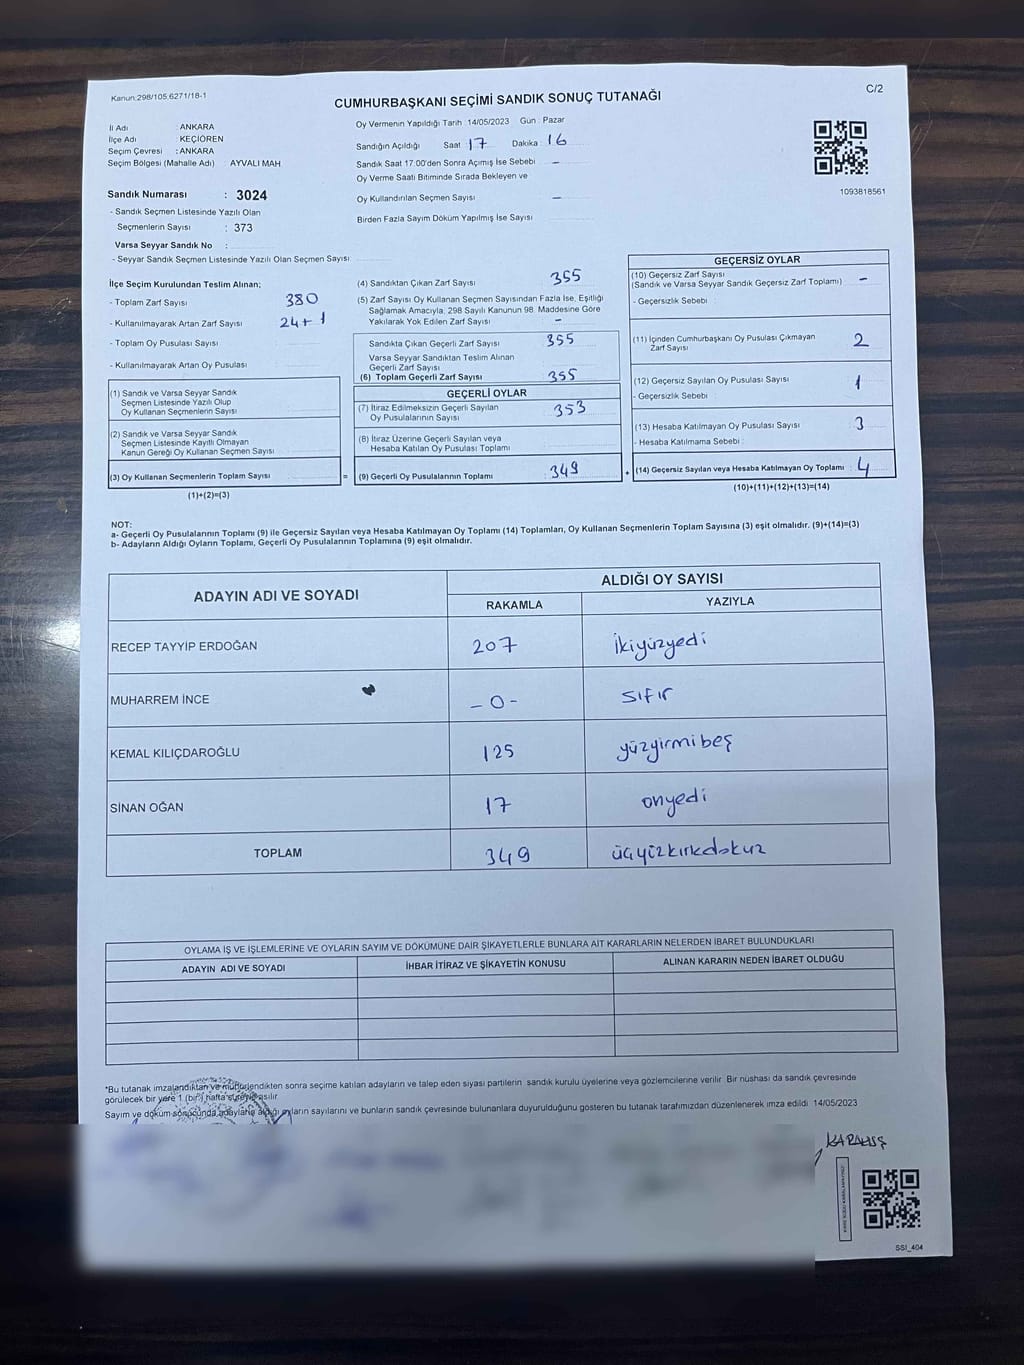 Kanun:298/105,6271/18-1
C/2
CUMHURBAŞKANI SEÇİMİ SANDIK SONUÇ TUTANAĞI
İl Adı : ANKARA
İlçe Adı : KEÇİÖREN
Seçim Çevresi : ANKARA
Seçim Bölgesi (Mahalle Adı) : AYVALI MAH
Sandık Numarası : 3024
- Sandık Seçmen Listesinde Yazılı Olan
Seçmenlerin Sayısı : 373
Varsa Seyyar Sandık No :
- Seyyar Sandık Seçmen Listesinde Yazılı Olan Seçmen Sayısı :
Oy Vermenin Yapıldığı Tarih :14/05/2023 Gün : Pazar
Sandığın Açıldığı Saat : 17 Dakika : 16
Sandık Saat 17:00'den Sonra Açımış İse Sebebi : -
Oy Verme Saati Bitiminde Sırada Bekleyen ve
Oy Kullandırılan Seçmen Sayısı : -
Birden Fazla Sayım Döküm Yapılmış İse Sayısı :
1093818561
İlçe Seçim Kurulundan Teslim Alınan;
- Toplam Zarf Sayısı : 380
- Kullanılmayarak Artan Zarf Sayısı : 24+1
- Toplam Oy Pusulası Sayısı :
- Kullanılmayarak Artan Oy Pusulası :
(1) Sandık ve Varsa Seyyar Sandık
Seçmen Listesinde Yazılı Olup
Oy Kullanan Seçmenlerin Sayısı
(2) Sandık ve Varsa Seyyar Sandık
Seçmen Listesinde Kayıtlı Olmayan
Kanun Gereği Oy Kullanan Seçmen Sayısı
(3) Oy Kullanan Seçmenlerin Toplam Sayısı
(1)+(2)=(3)
(4) Sandıktan Çıkan Zarf Sayısı : 355
(5) Zarf Sayısı Oy Kullanan Seçmen Sayısından Fazla İse, Eşitliği
Sağlamak Amacıyla, 298 Sayılı Kanunun 98. Maddesine Göre
Yakılarak Yok Edilen Zarf Sayısı : -
Sandıkta Çıkan Geçerli Zarf Sayısı : 355
Varsa Seyyar Sandıktan Teslim Alınan
Geçerli Zarf Sayısı
(6) Toplam Geçerli Zarf Sayısı : 355
GEÇERLİ OYLAR
(7) İtiraz Edilmeksizin Geçerli Sayılan
Oy Pusulalarının Sayısı : 353
(8) İtiraz Üzerine Geçerli Sayılan veya
Hesaba Katılan Oy Pusulası Toplamı :
= (9) Geçerli Oy Pusulalarının Toplamı : 349 +
GEÇERSİZ OYLAR
(10) Geçersiz Zarf Sayısı
(Sandık ve Varsa Seyyar Sandık Geçersiz Zarf Toplamı) : -
- Geçersizlik Sebebi :
(11) İçinden Cumhurbaşkanı Oy Pusulası Çıkmayan
Zarf Sayısı : 2
(12) Geçersiz Sayılan Oy Pusulası Sayısı : 1
- Geçersizlik Sebebi :
(13) Hesaba Katılmayan Oy Pusulası Sayısı : 3
- Hesaba Katılmama Sebebi :
(14) Geçersiz Sayılan veya Hesaba Katılmayan Oy Toplamı : 4
(10)+(11)+(12)+(13)=(14)
NOT:
a- Geçerli Oy Pusulalarının Toplamı (9) ile Geçersiz Sayılan veya Hesaba Katılmayan Oy Toplamı (14) Toplamları, Oy Kullanan Seçmenlerin Toplam Sayısına (3) eşit olmalıdır. (9)+(14)=(3)
b- Adayların Aldığı Oyların Toplamı, Geçerli Oy Pusulalarının Toplamına (9) eşit olmalıdır.
ADAYIN ADI VE SOYADI ALDIĞI OY SAYISI
RAKAMLA YAZIYLA
RECEP TAYYİP ERDOĞAN 207 ikiyüzyedi
MUHARREM İNCE -0- sıfır
KEMAL KILIÇDAROĞLU 125 yüzyirmibeş
SİNAN OĞAN 17 onyedi
TOPLAM 349 üçyüzkırkdokuz
OYLAMA İŞ VE İŞLEMLERİNE VE OYLARIN SAYIM VE DÖKÜMÜNE DAİR ŞİKAYETLERLE BUNLARA AİT KARARLARIN NELERDEN İBARET BULUNDUKLARI
ADAYIN ADI VE SOYADI İHBAR İTİRAZ VE ŞİKAYETİN KONUSU ALINAN KARARIN NEDEN İBARET OLDUĞU
*Bu tutanak imzalandıktan ve mühürlendikten sonra seçime katılan adayların ve talep eden siyasi partilerin sandık kurulu üyelerine veya gözlemcilerine verilir Bir nüshası da sandık çevresinde
görülecek bir yere 1 (bir) hafta süreyle asılır
Sayım ve döküm sonucunda adayların aldığı oyların sayılarını ve bunların sandık çevresinde bulunanlara duyurulduğunu gösteren bu tutanak tarafımızdan düzenlenerek imza edildi 14/05/2023
SSI_404